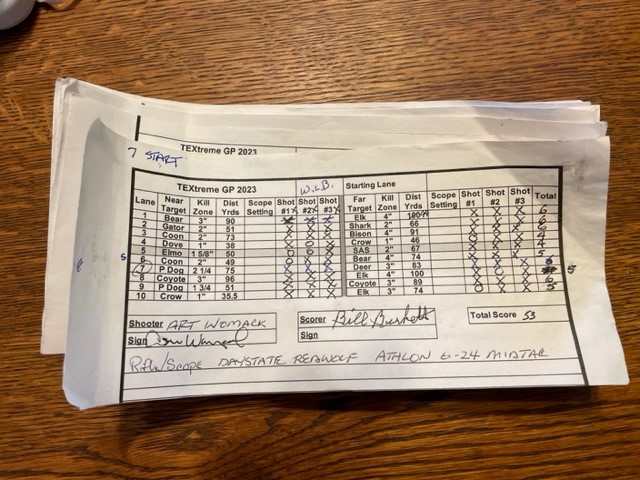 TEXtreme GP 2023
7 START
TEXtreme GP 2023 W.L.B. Starting Lane
Lane Near Target Kill Zone Dist Yrds Scope Setting Shot #1 Shot #2 Shot #3 Far Target Kill Zone Dist Yrds Scope Setting Shot #1 Shot #2 Shot #3 Total
1 Bear 3" 90 X X X Elk 4" X X X 6
2 Gator 2" 51 X X X Shark 2" 66 X X X 6
3 Coon 2" 73 Bison 4" 91
4 Dove 1" 38 X O X Crow 1" 46 4
5 Elmo 1 5/8" 50 SAS 2" 67 5
6 Coon 2" 49 Bear 4" 74
7 P Dog 2 1/4 75 X X X Deer 3" 83 5
8 Coyote 3" 96 X X X Elk 4" 100
9 P Dog 1 3/4 51 X X X Coyote 3" 89
10 Crow 1" 35.5 Elk 3" 74
Shooter ART WOMACK Scorer Bill Burkett Total Score 53
Sign Sign
Rifle/Scope DAYSTATE REDWOLF ATHLON 6-24 MIDTAC